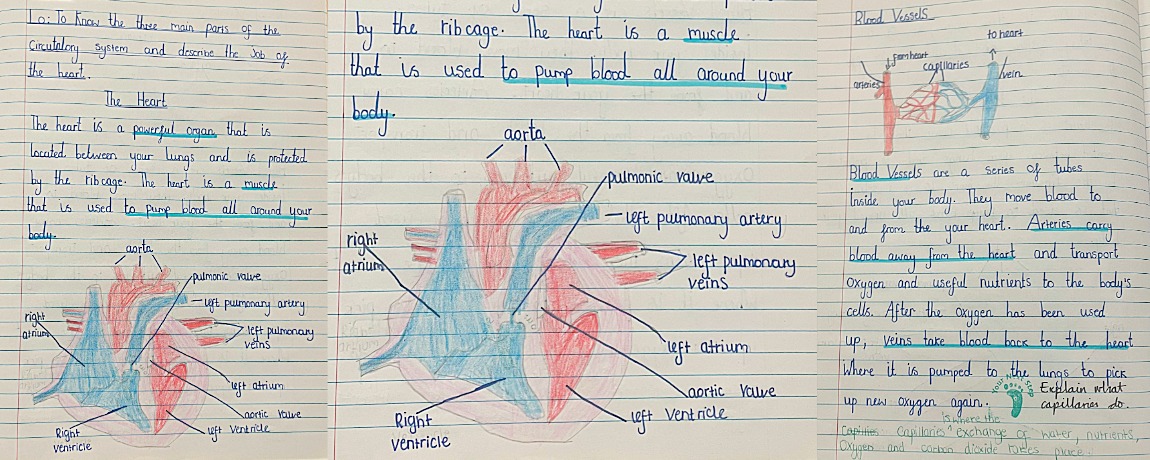 Lo: To Know the three main parts of the
Circutalory system and describe the Job of
the heart.
The Heart
The heart is a powerful organ that is
located between your lungs and is protected
by the rib cage. The heart is a muscle
that is used to pump blood all around your
body.
aorta
pulmonic valve
left pulmonary artery
right
atrium
left pulmonary
veins
left atrium
aortic valve
left ventricle
Right
ventricle
by the rib cage. The heart is a muscle
that is used to pump blood all around your
body.
aorta
pulmonic valve
left pulmonary artery
right
atrium
left pulmonary
veins
left atrium
aortic valve
left ventricle
Right
ventricle
Blood Vessels
to heart
from heart
capillaries
vein
arteries
Blood Vessels are a series of tubes
inside your body. They move blood to
and from the your heart. Arteries carry
blood away from the heart and transport
oxygen and useful nutrients to the body's
cells. After the oxygen has been used
up, veins take blood back to the heart
Where it is pumped to the lungs to pick
up new oxygen again.
Your Next Step
Explain what
capillaries do.
is where the
Capillaries exchange of water, nutrients,
Oxygen and carbon dioxide takes place.